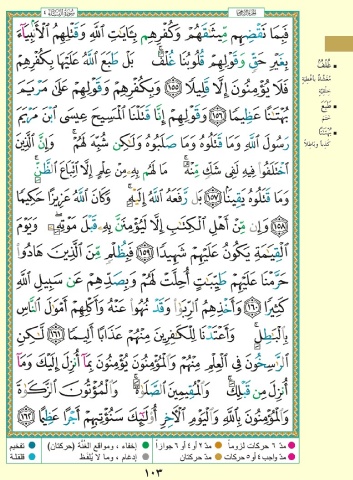 سُورَةُ النِّسَاءِ ٤
الجُزْءُ السَّادِسُ
فَبِمَا نَقْضِهِم مِّيثَٰقَهُمْ وَكُفْرِهِم بِـَٔايَٰتِ ٱللَّهِ وَقَتْلِهِمُ ٱلْأَنۢبِيَآءَ
بِغَيْرِ حَقٍّ وَقَوْلِهِمْ قُلُوبُنَا غُلْفٌۢ ۚ بَلْ طَبَعَ ٱللَّهُ عَلَيْهَا بِكُفْرِهِمْ
فَلَا يُؤْمِنُونَ إِلَّا قَلِيلًا ﴿١٥٥﴾ وَبِكُفْرِهِمْ وَقَوْلِهِمْ عَلَىٰ مَرْيَمَ
بُهْتَٰنًا عَظِيمًا ﴿١٥٦﴾ وَقَوْلِهِمْ إِنَّا قَتَلْنَا ٱلْمَسِيحَ عِيسَى ٱبْنَ مَرْيَمَ
رَسُولَ ٱللَّهِ وَمَا قَتَلُوهُ وَمَا صَلَبُوهُ وَلَٰكِن شُبِّهَ لَهُمْ ۚ وَإِنَّ ٱلَّذِينَ
ٱخْتَلَفُوا۟ فِيهِ لَفِى شَكٍّ مِّنْهُ ۚ مَا لَهُم بِهِۦ مِنْ عِلْمٍ إِلَّا ٱتِّبَاعَ ٱلظَّنِّ ۚ
وَمَا قَتَلُوهُ يَقِينًۢا ﴿١٥٧﴾ بَل رَّفَعَهُ ٱللَّهُ إِلَيْهِ ۚ وَكَانَ ٱللَّهُ عَزِيزًا حَكِيمًا
﴿١٥٨﴾ وَإِن مِّنْ أَهْلِ ٱلْكِتَٰبِ إِلَّا لَيُؤْمِنَنَّ بِهِۦ قَبْلَ مَوْتِهِۦ ۖ وَيَوْمَ
ٱلْقِيَٰمَةِ يَكُونُ عَلَيْهِمْ شَهِيدًا ﴿١٥٩﴾ فَبِظُلْمٍ مِّنَ ٱلَّذِينَ هَادُوا۟
حَرَّمْنَا عَلَيْهِمْ طَيِّبَٰتٍ أُحِلَّتْ لَهُمْ وَبِصَدِّهِمْ عَن سَبِيلِ ٱللَّهِ
كَثِيرًا ﴿١٦٠﴾ وَأَخْذِهِمُ ٱلرِّبَوٰا۟ وَقَدْ نُهُوا۟ عَنْهُ وَأَكْلِهِمْ أَمْوَٰلَ ٱلنَّاسِ
بِٱلْبَٰطِلِ ۚ وَأَعْتَدْنَا لِلْكَٰفِرِينَ مِنْهُمْ عَذَابًا أَلِيمًا ﴿١٦١﴾ لَّٰكِنِ
ٱلرَّٰسِخُونَ فِى ٱلْعِلْمِ مِنْهُمْ وَٱلْمُؤْمِنُونَ يُؤْمِنُونَ بِمَآ أُنزِلَ إِلَيْكَ وَمَآ
أُنزِلَ مِن قَبْلِكَ ۚ وَٱلْمُقِيمِينَ ٱلصَّلَوٰةَ ۚ وَٱلْمُؤْتُونَ ٱلزَّكَوٰةَ
وَٱلْمُؤْمِنُونَ بِٱللَّهِ وَٱلْيَوْمِ ٱلْأَخِرِ أُو۟لَٰٓئِكَ سَنُؤْتِيهِمْ أَجْرًا عَظِيمًا ﴿١٦٢﴾
غُلْفٌ
مُغَشَّاةٌ بأغطية
خلقية
طَبَعَ
ختم
بُهْتَانًا
كذبًا وباطلًا
مدّ ٦ حركات لزومًا
مدّ ٢ أو ٤ أو ٦ جوازًا
إخفاء، ومواقع الغُنَّة (حركتان)
تفخيم
مدّ واجب ٤ أو ٥ حركات
مدّ حركتان
إدغام، وما لا يُلفظ
قلقلة
١٠٣